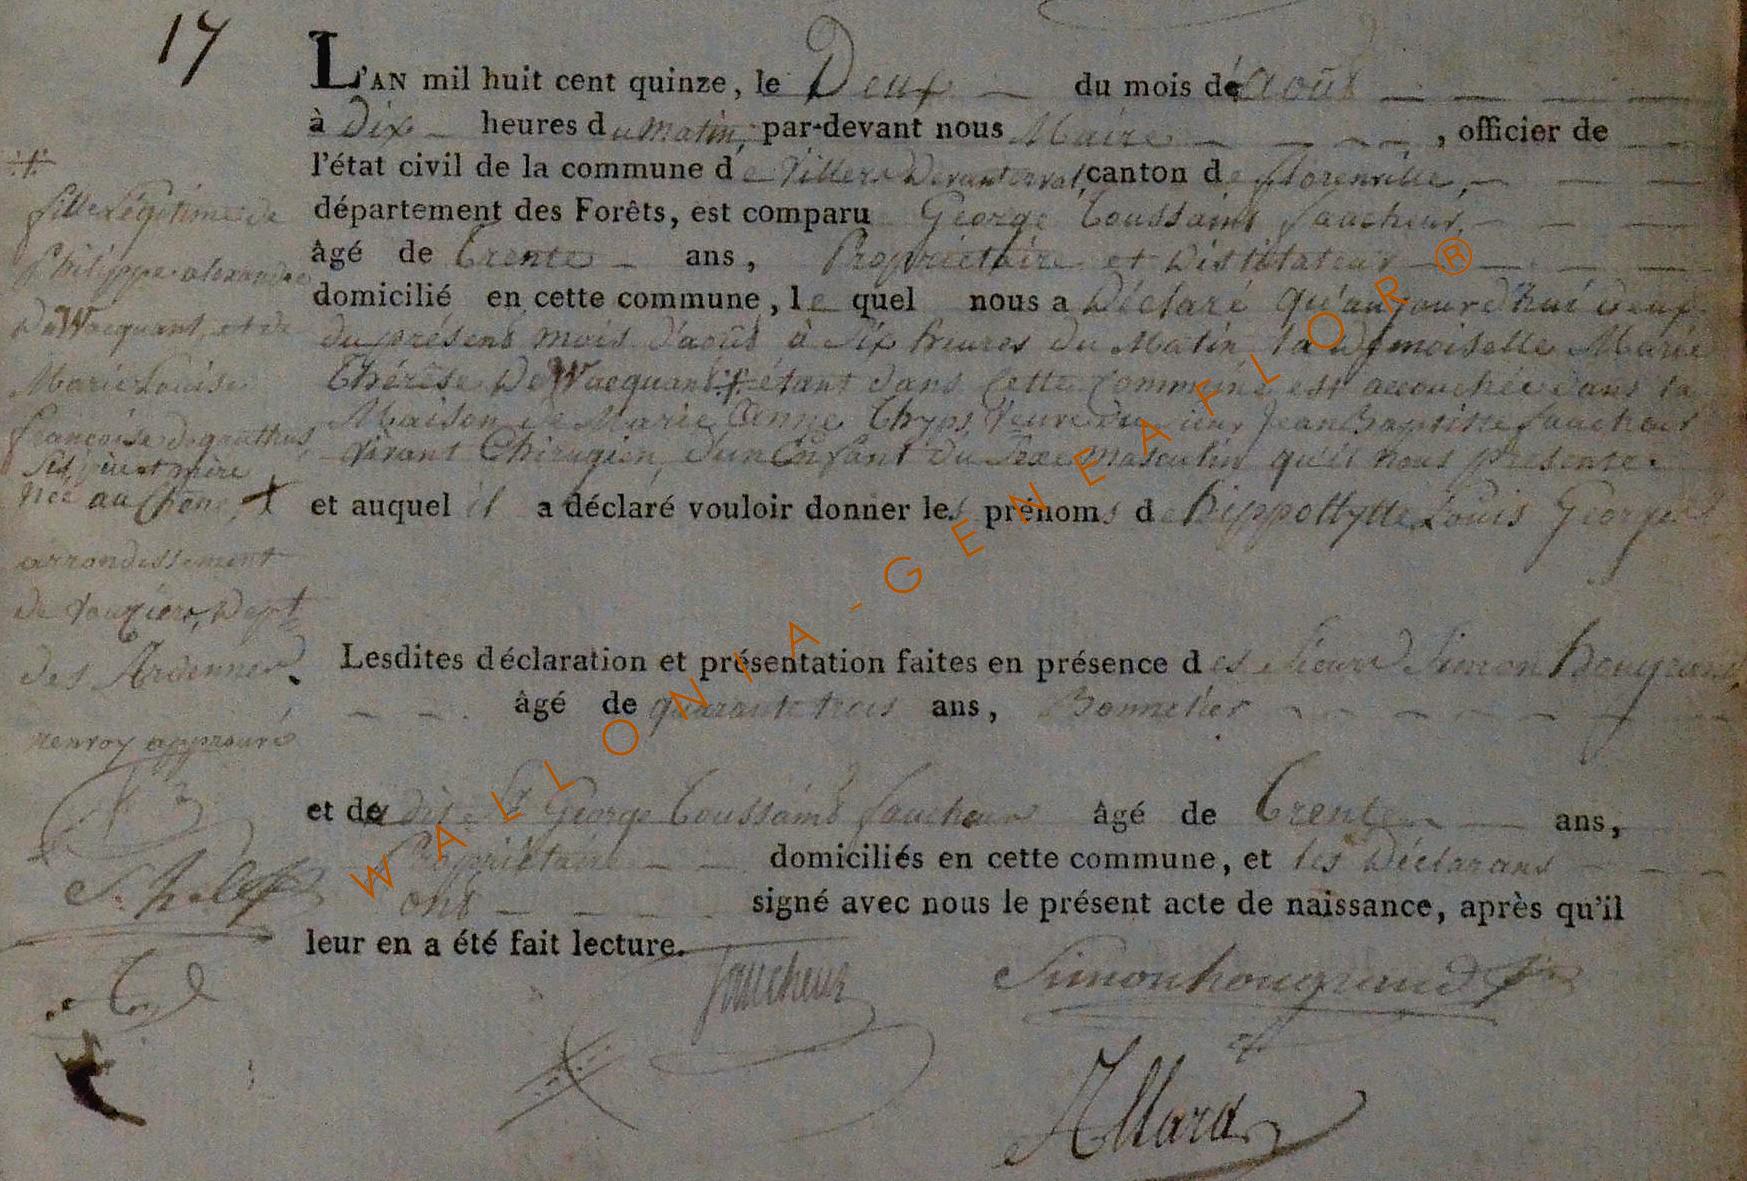 17
L'AN mil huit cent quinze, le Deux du mois de aoút
à Dix heures du matin, par-devant nous Maire, officier de
l'état civil de la commune de Villers Devant orval, canton de florenville,
département des Forêts, est comparu George Toussaint faucheur,
âgé de Trente ans, Propriétaire et Distilateur
domicilié en cette commune, le quel nous a Déclaré qu'aujourd'hui deux
du présent mois d'août à Six heures du Matin la demoiselle Marie
Thérèse De Wacquant # étant dans cette commune est accouchée dans la
Maison de Marie Anne Thyps, veuve du sieur Jean Baptiste faucheur
vivant Chirugien, d'un Enfant du Sexe masculin qu'il nous presente.
et auquel il a déclaré vouloir donner les prénoms de hippollytte Louis George
Lesdites déclaration et présentation faites en présence des Sieurs Simon hougrand,
âgé de quarante trois ans, Bonnetier
et du dit Sr George Toussaint faucheur âgé de Trente ans,
Propriétaire domiciliés en cette commune, et les Déclarans
ont signé avec nous le présent acte de naissance, après qu'il
leur en a été fait lecture.
faucheur
Simon hougrand
Allard
#
fille Légitime de
Philippe alexandre
De Wacquant, et de
Marie Louise
françoise degruthus,
Ses père et mère
née au Chêne,
arrondissement
de Vouziers, Dept
des Ardennes.
renvoy approuvé
WALLONIA-GENEAFLOR®